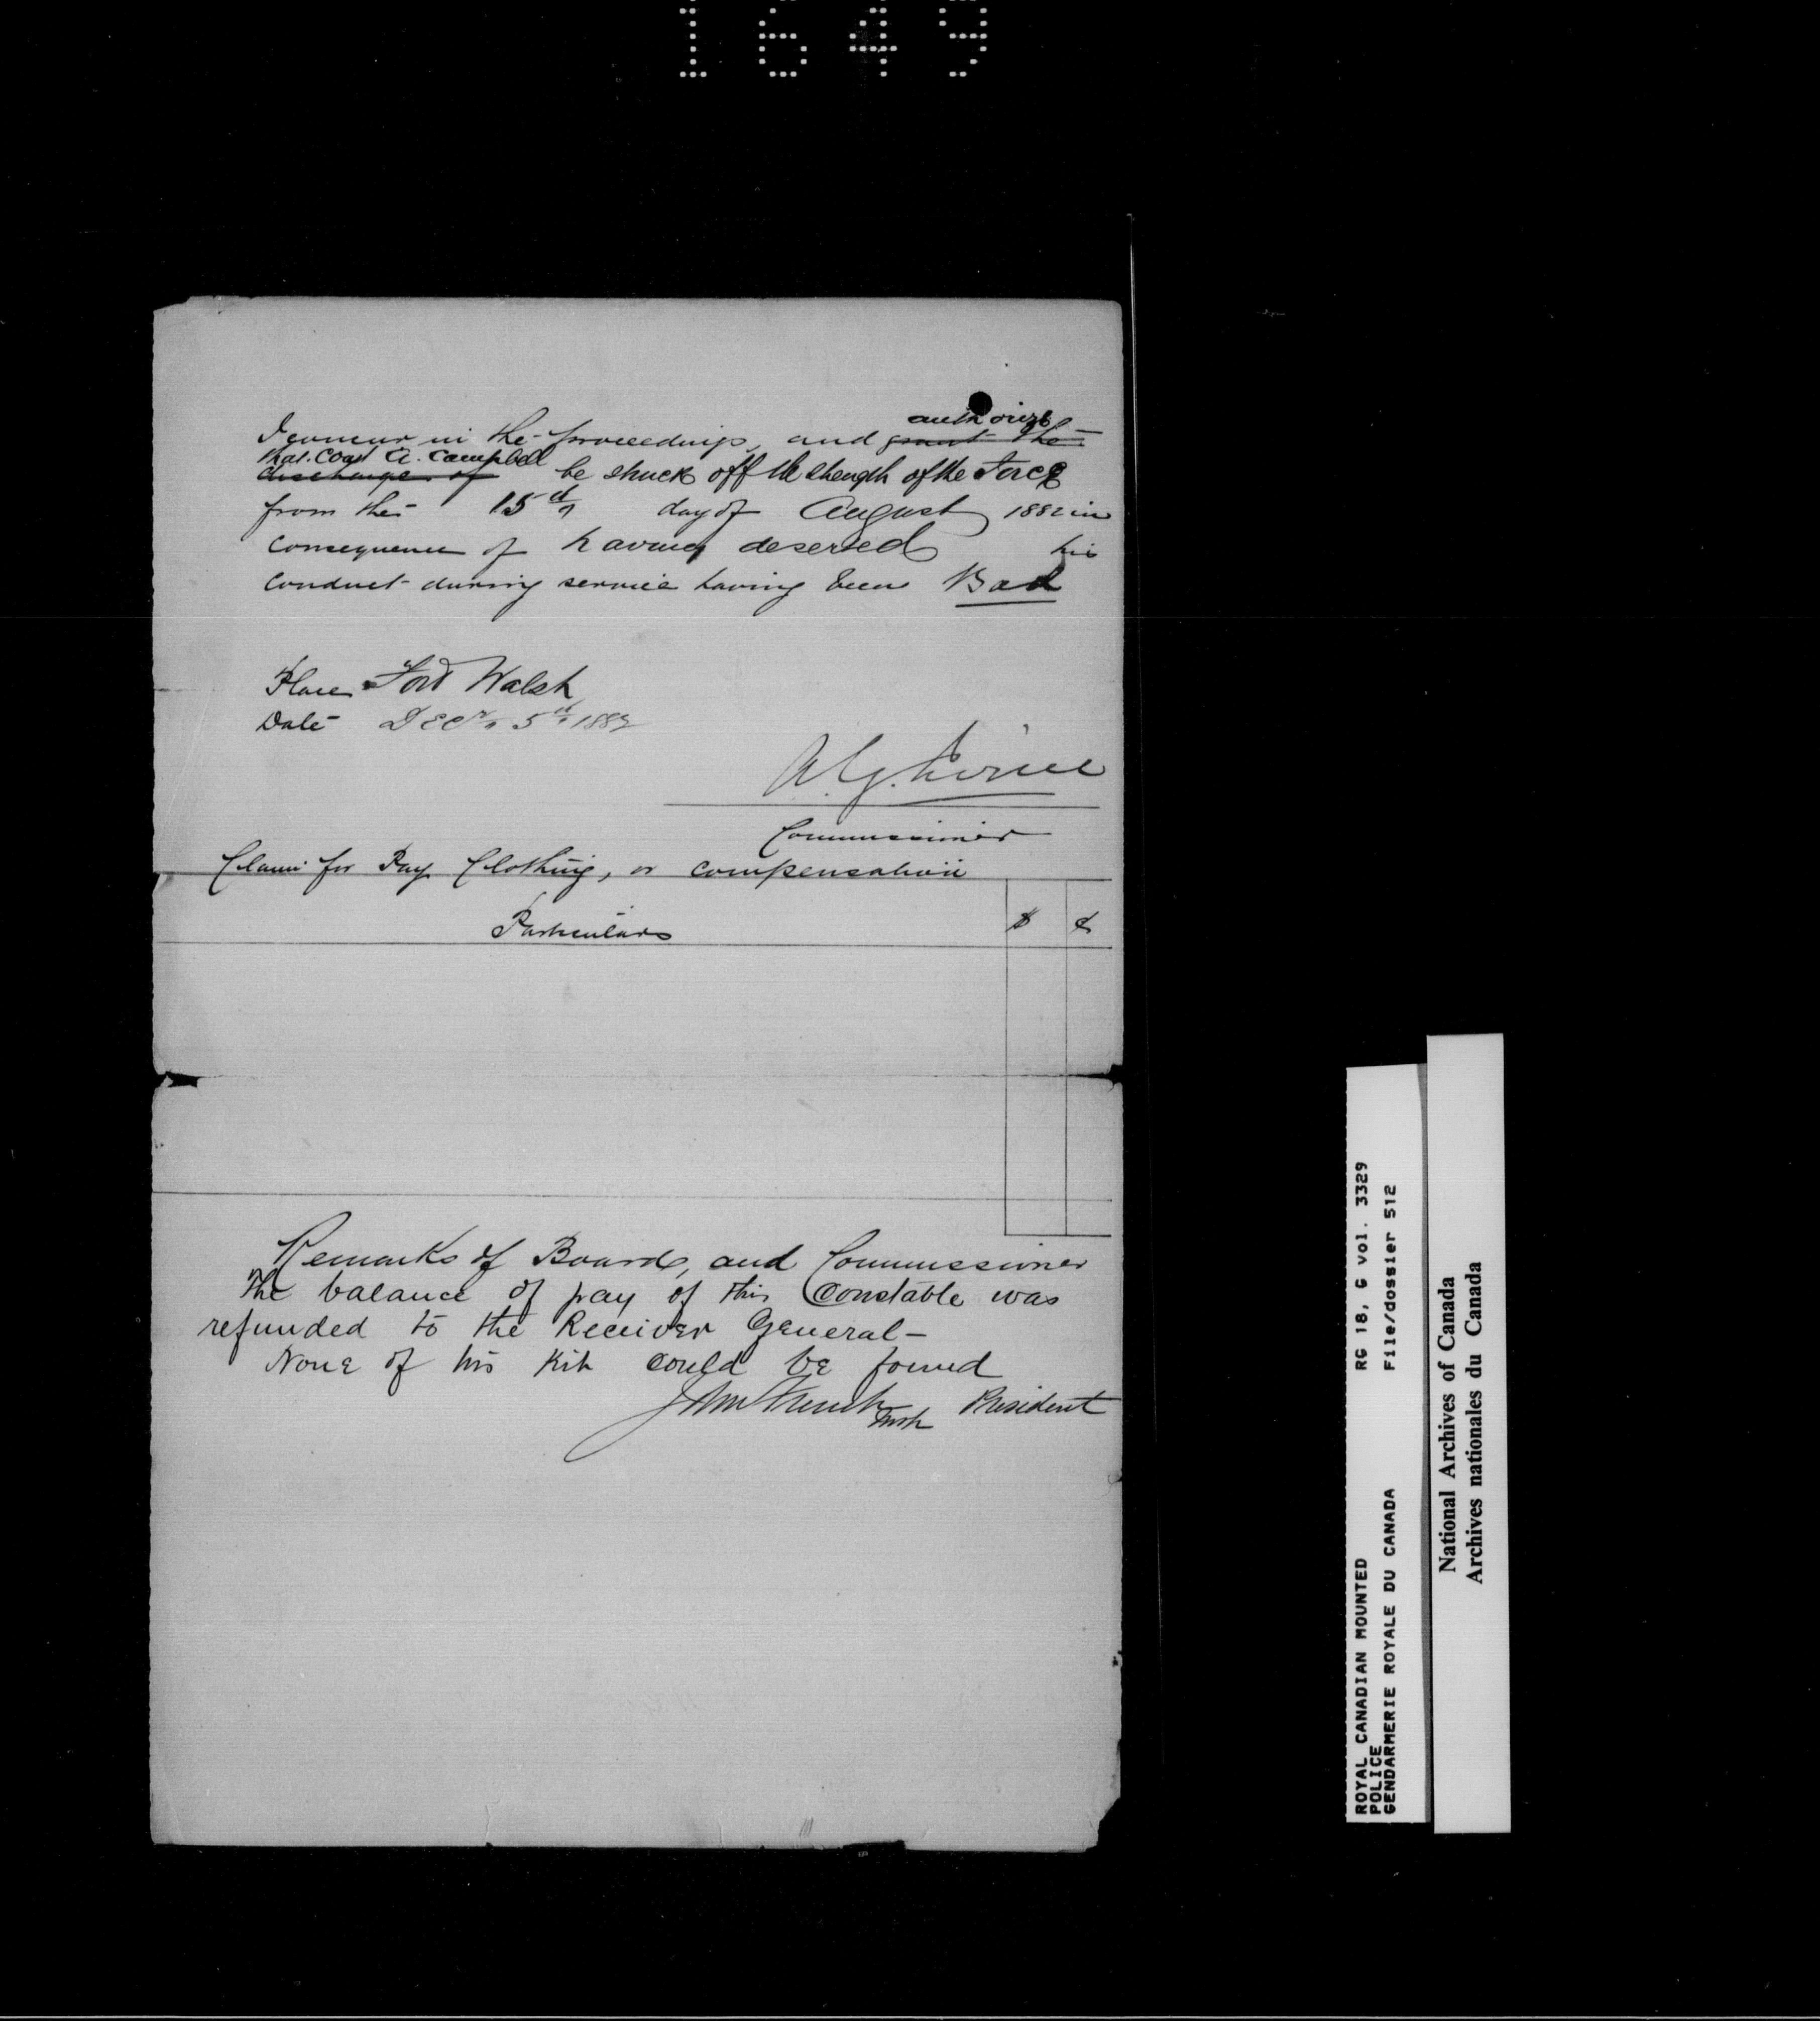 1649
authorize
I concur in the proceedings, and grant the
that Const A. Campbell
discharge of be struck off the strength of the Force
from the 15th day of August 1882 in
consequence of having deserted his
conduct during service having been Bad
Place Fort Walsh
Date Decr 5th 1882
A.G. Irvine
Commissioner
Claim for Pay Clothing, or compensation
Particulars $ ¢
Remarks of Board, and Commissioner
The balance of pay of this Constable was
refunded to the Receiver General—
None of his Kit could be found
John French President
Insp
ROYAL CANADIAN MOUNTED RG 18, G vol. 3329
POLICE
GENDARMERIE ROYALE DU CANADA File/dossier 512
National Archives of Canada
Archives nationales du Canada